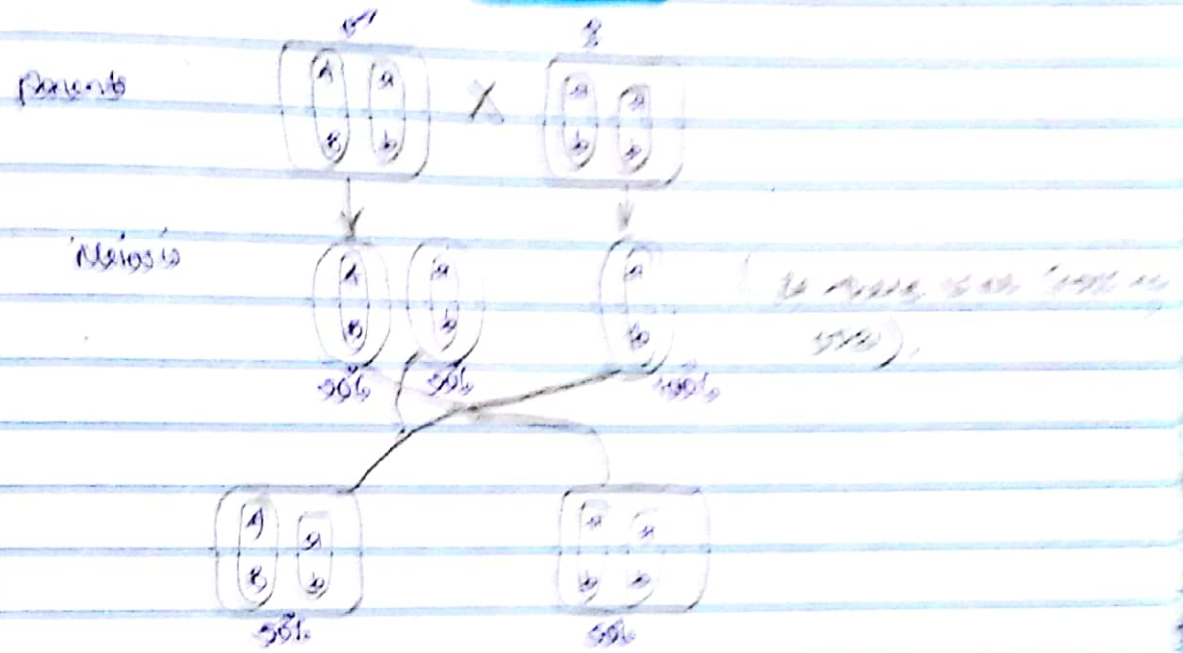 ♂ ♀
Parents A a X a a
B b b b
Meiosis A a a
B b b
50% 50% 100%
A a a a
B b b b
50% 50%